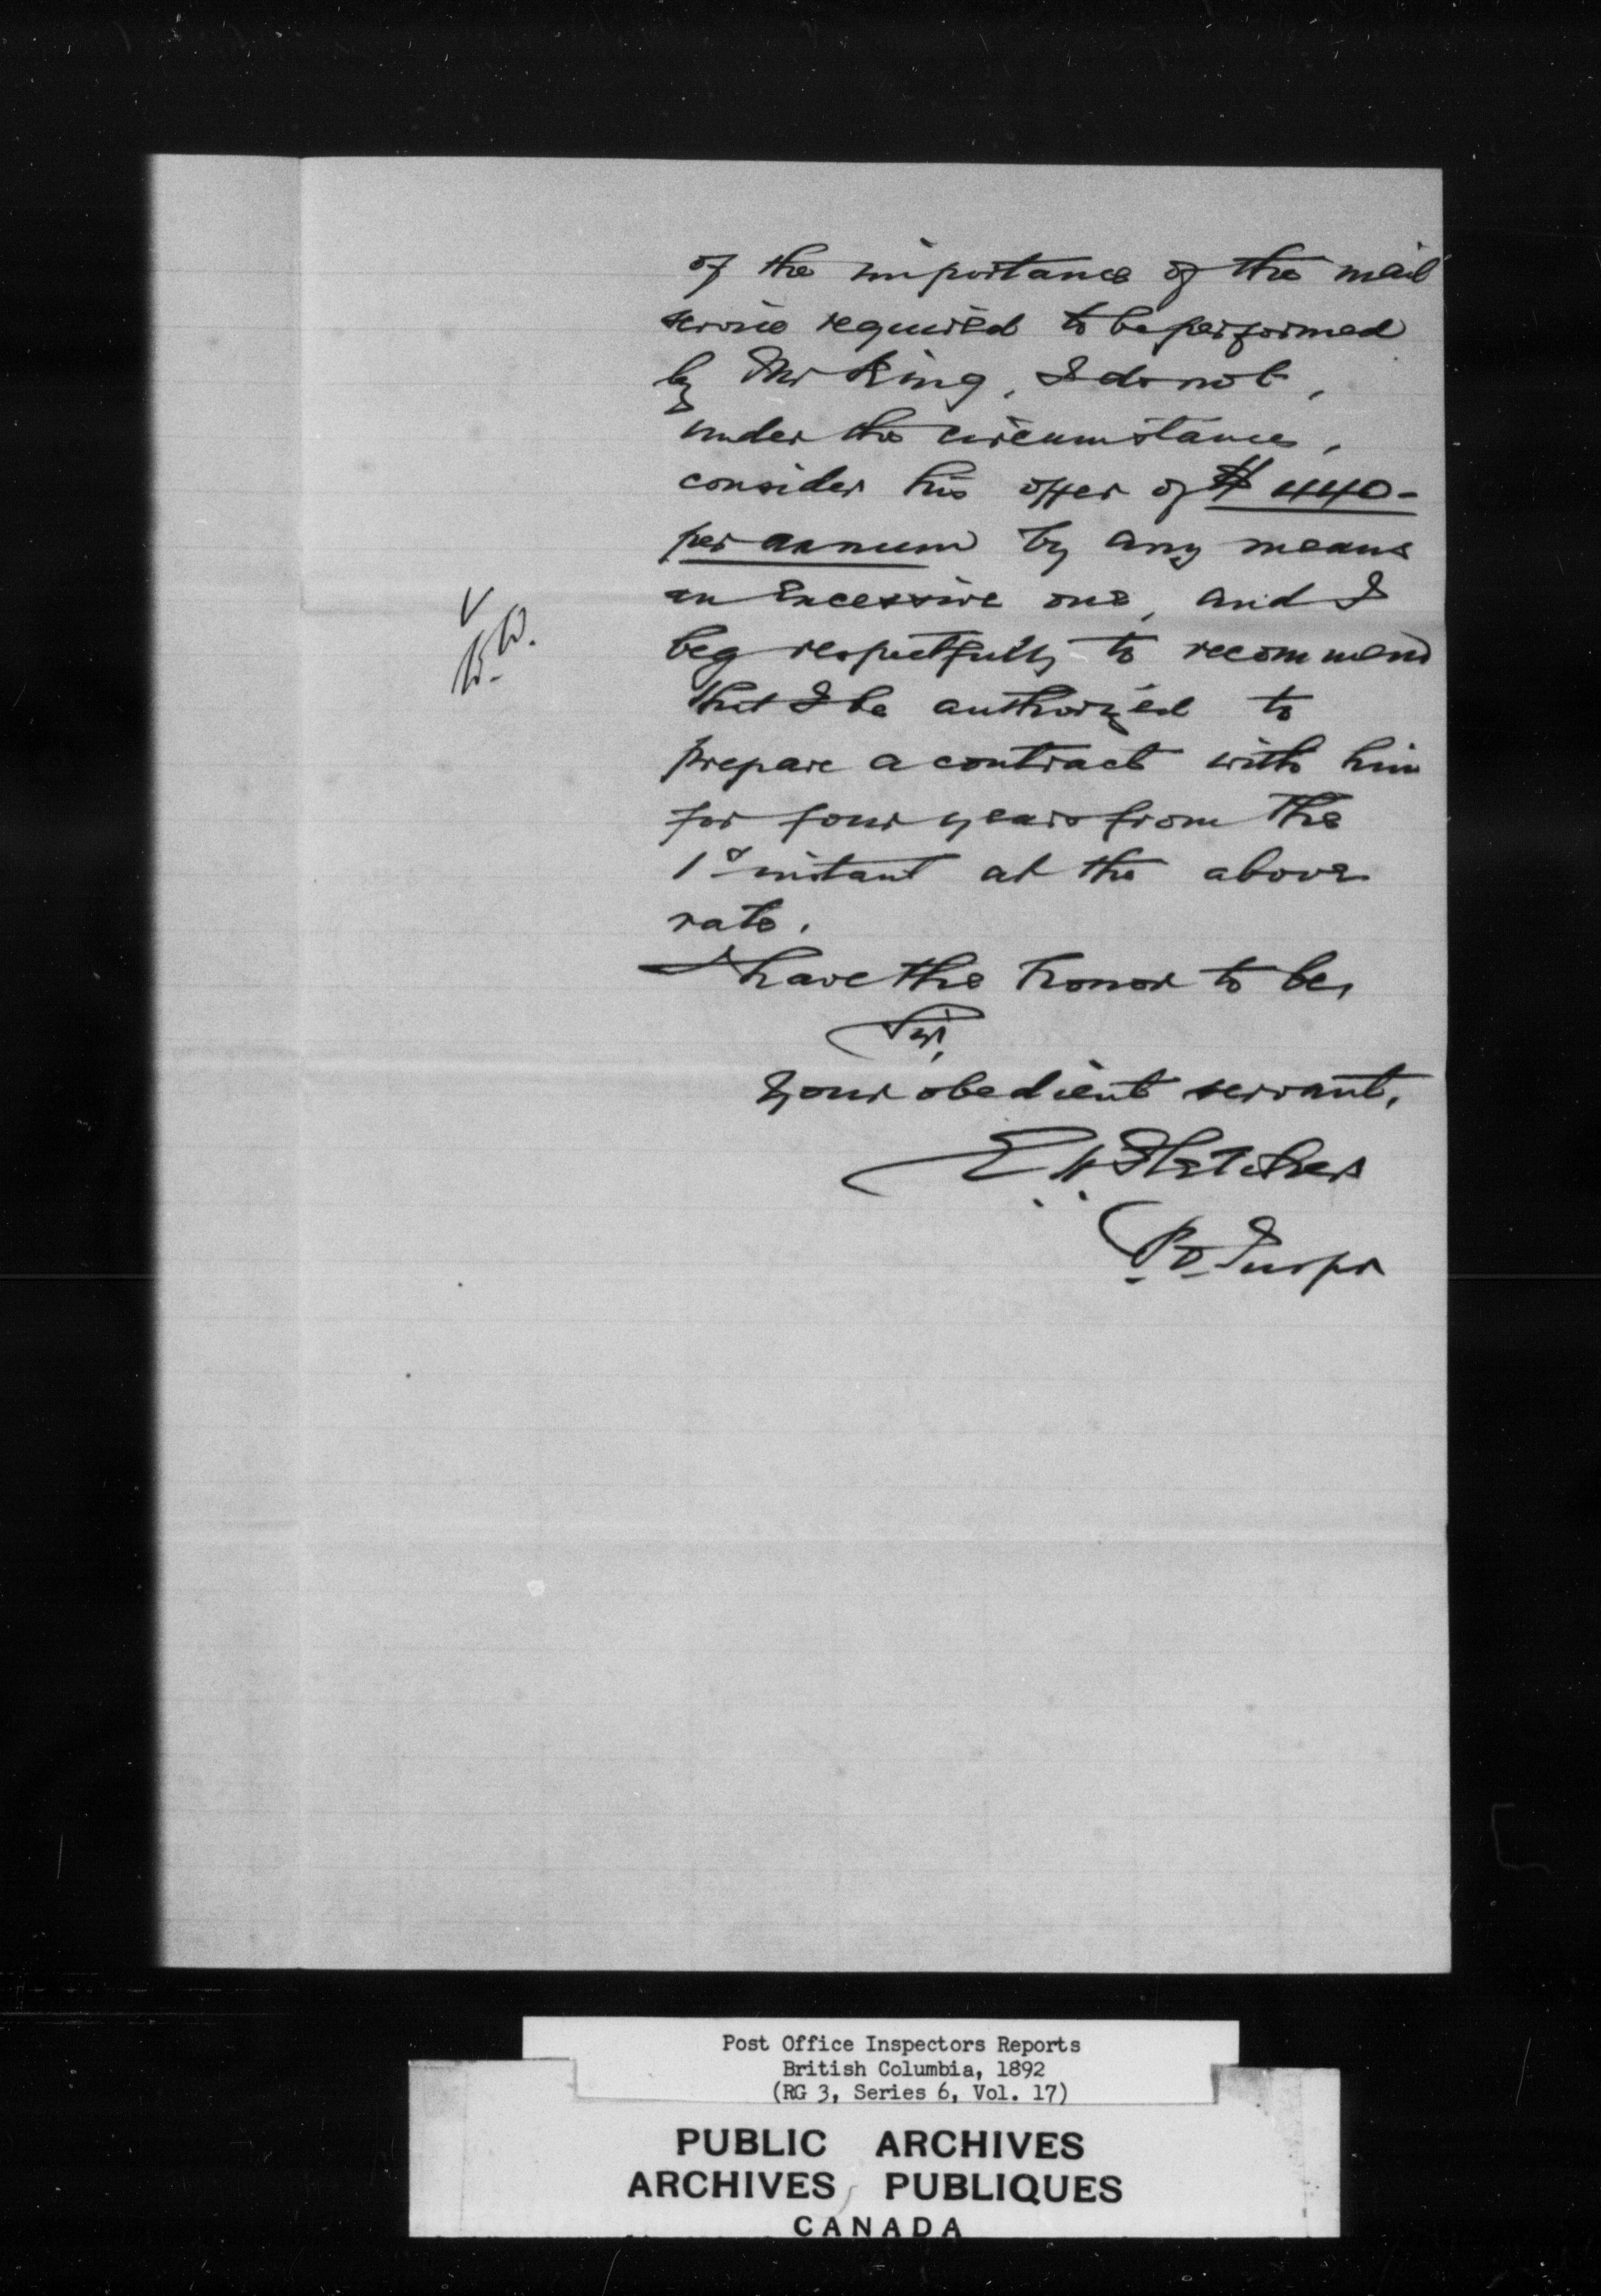 of the importance of the mail
service required to be performed
by Mr King, I do not,
under the circumstances,
consider his offer of $440-
per annum by any means
an excessive one, and I
beg respectfully to recommend
that I be authorized to
prepare a contract with him
for four years from the
1st instant at the above
rate.
I have the honor to be,
Sir,
Your obedient servant,
E H Fletcher
P.O. Inspr
Post Office Inspectors Reports
British Columbia, 1892
(RG 3, Series 6, Vol. 17)
PUBLIC ARCHIVES
ARCHIVES PUBLIQUES
CANADA